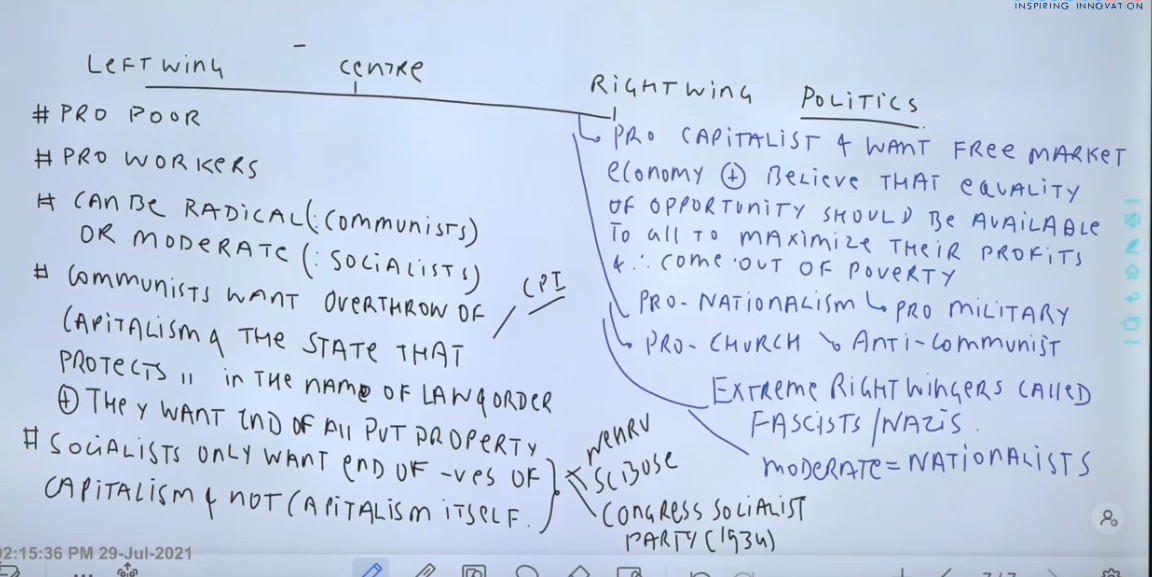 INSPIRING INNOVATION
LEFT WING
CENTRE
RIGHT WING POLITICS
# PRO POOR
# PRO WORKERS
# CAN BE RADICAL (: COMMUNISTS)
OR MODERATE (: SOCIALISTS)
# COMMUNISTS WANT OVERTHROW OF
CAPITALISM & THE STATE THAT
PROTECTS " IN THE NAME OF LAW & ORDER
⊕ THEY WANT END OF ALL PVT PROPERTY
CPI
# SOCIALISTS ONLY WANT END OF -VES OF
CAPITALISM & NOT CAPITALISM ITSELF.
NEHRU
SC BOSE
CONGRESS SOCIALIST
PARTY (1934)
PRO CAPITALIST & WANT FREE MARKET
ECONOMY ⊕ BELIEVE THAT EQUALITY
OF OPPORTUNITY SHOULD BE AVAILABLE
TO ALL TO MAXIMIZE THEIR PROFITS
& ∴ COME OUT OF POVERTY
PRO-NATIONALISM ↳ PRO MILITARY
PRO-CHURCH ↘ ANTI-COMMUNIST
EXTREME RIGHT WINGERS CALLED
FASCISTS/NAZIS.
MODERATE = NATIONALISTS
02:15:36 PM 29-Jul-2021
7/7